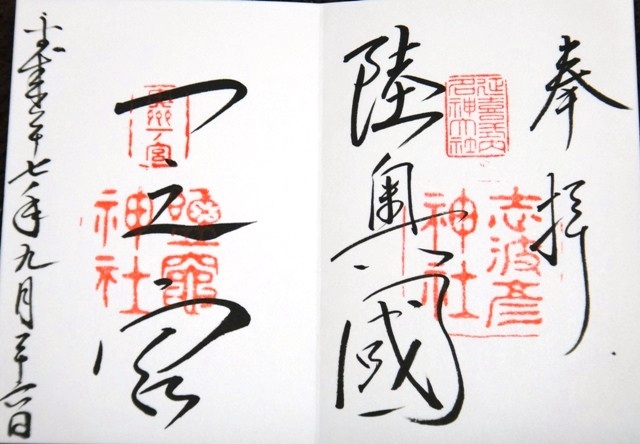 奉拝
陸奥國
延喜式内
名神大社
志波彦
神社
一之宮
奥州
一宮
鹽竈
神社
平成廿七年九月二十六日